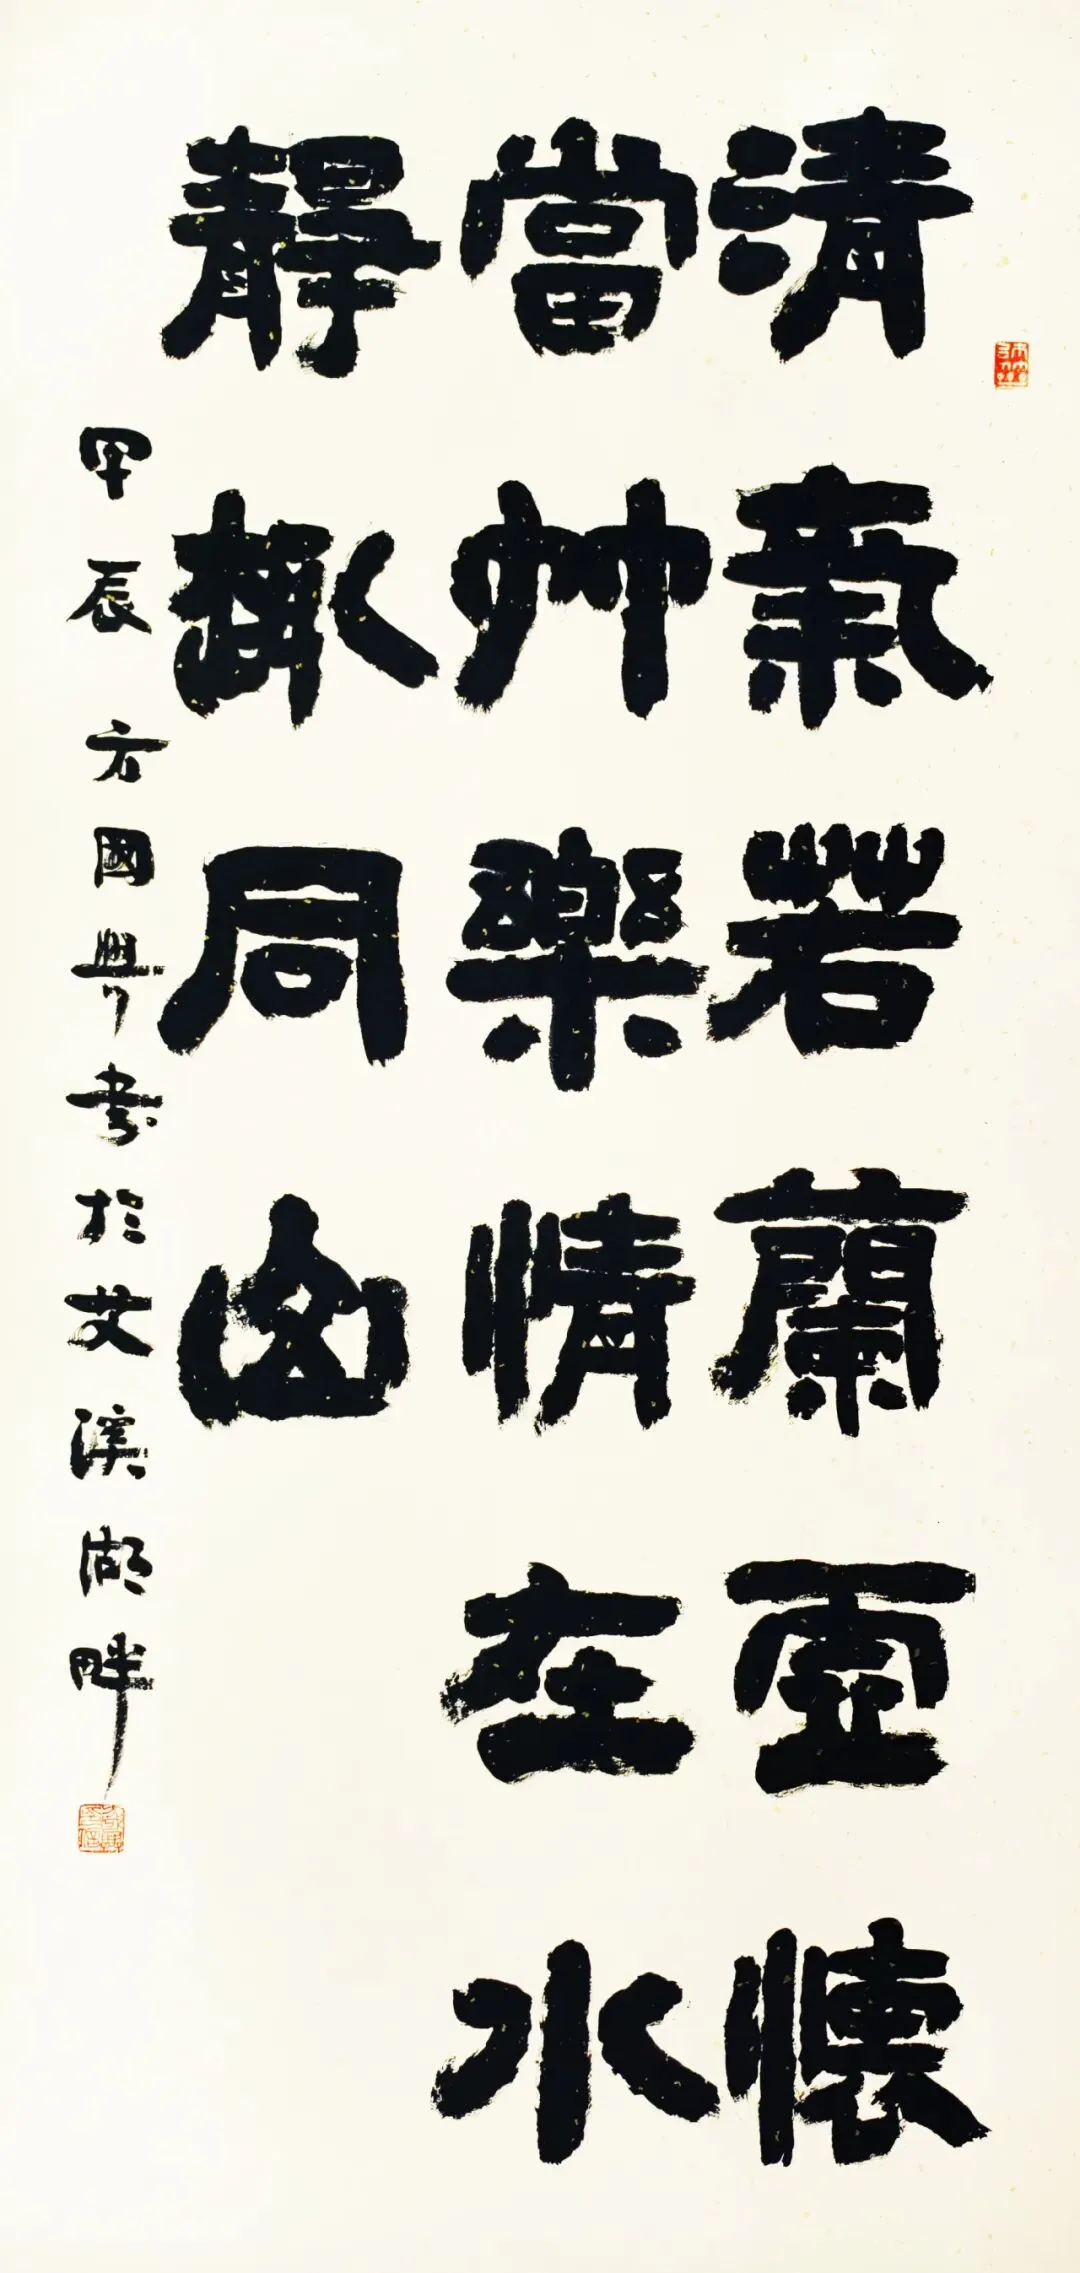 清氣若蘭虛懷
當竹樂情在水
靜趣同山
甲辰方國興書於艾溪湖畔